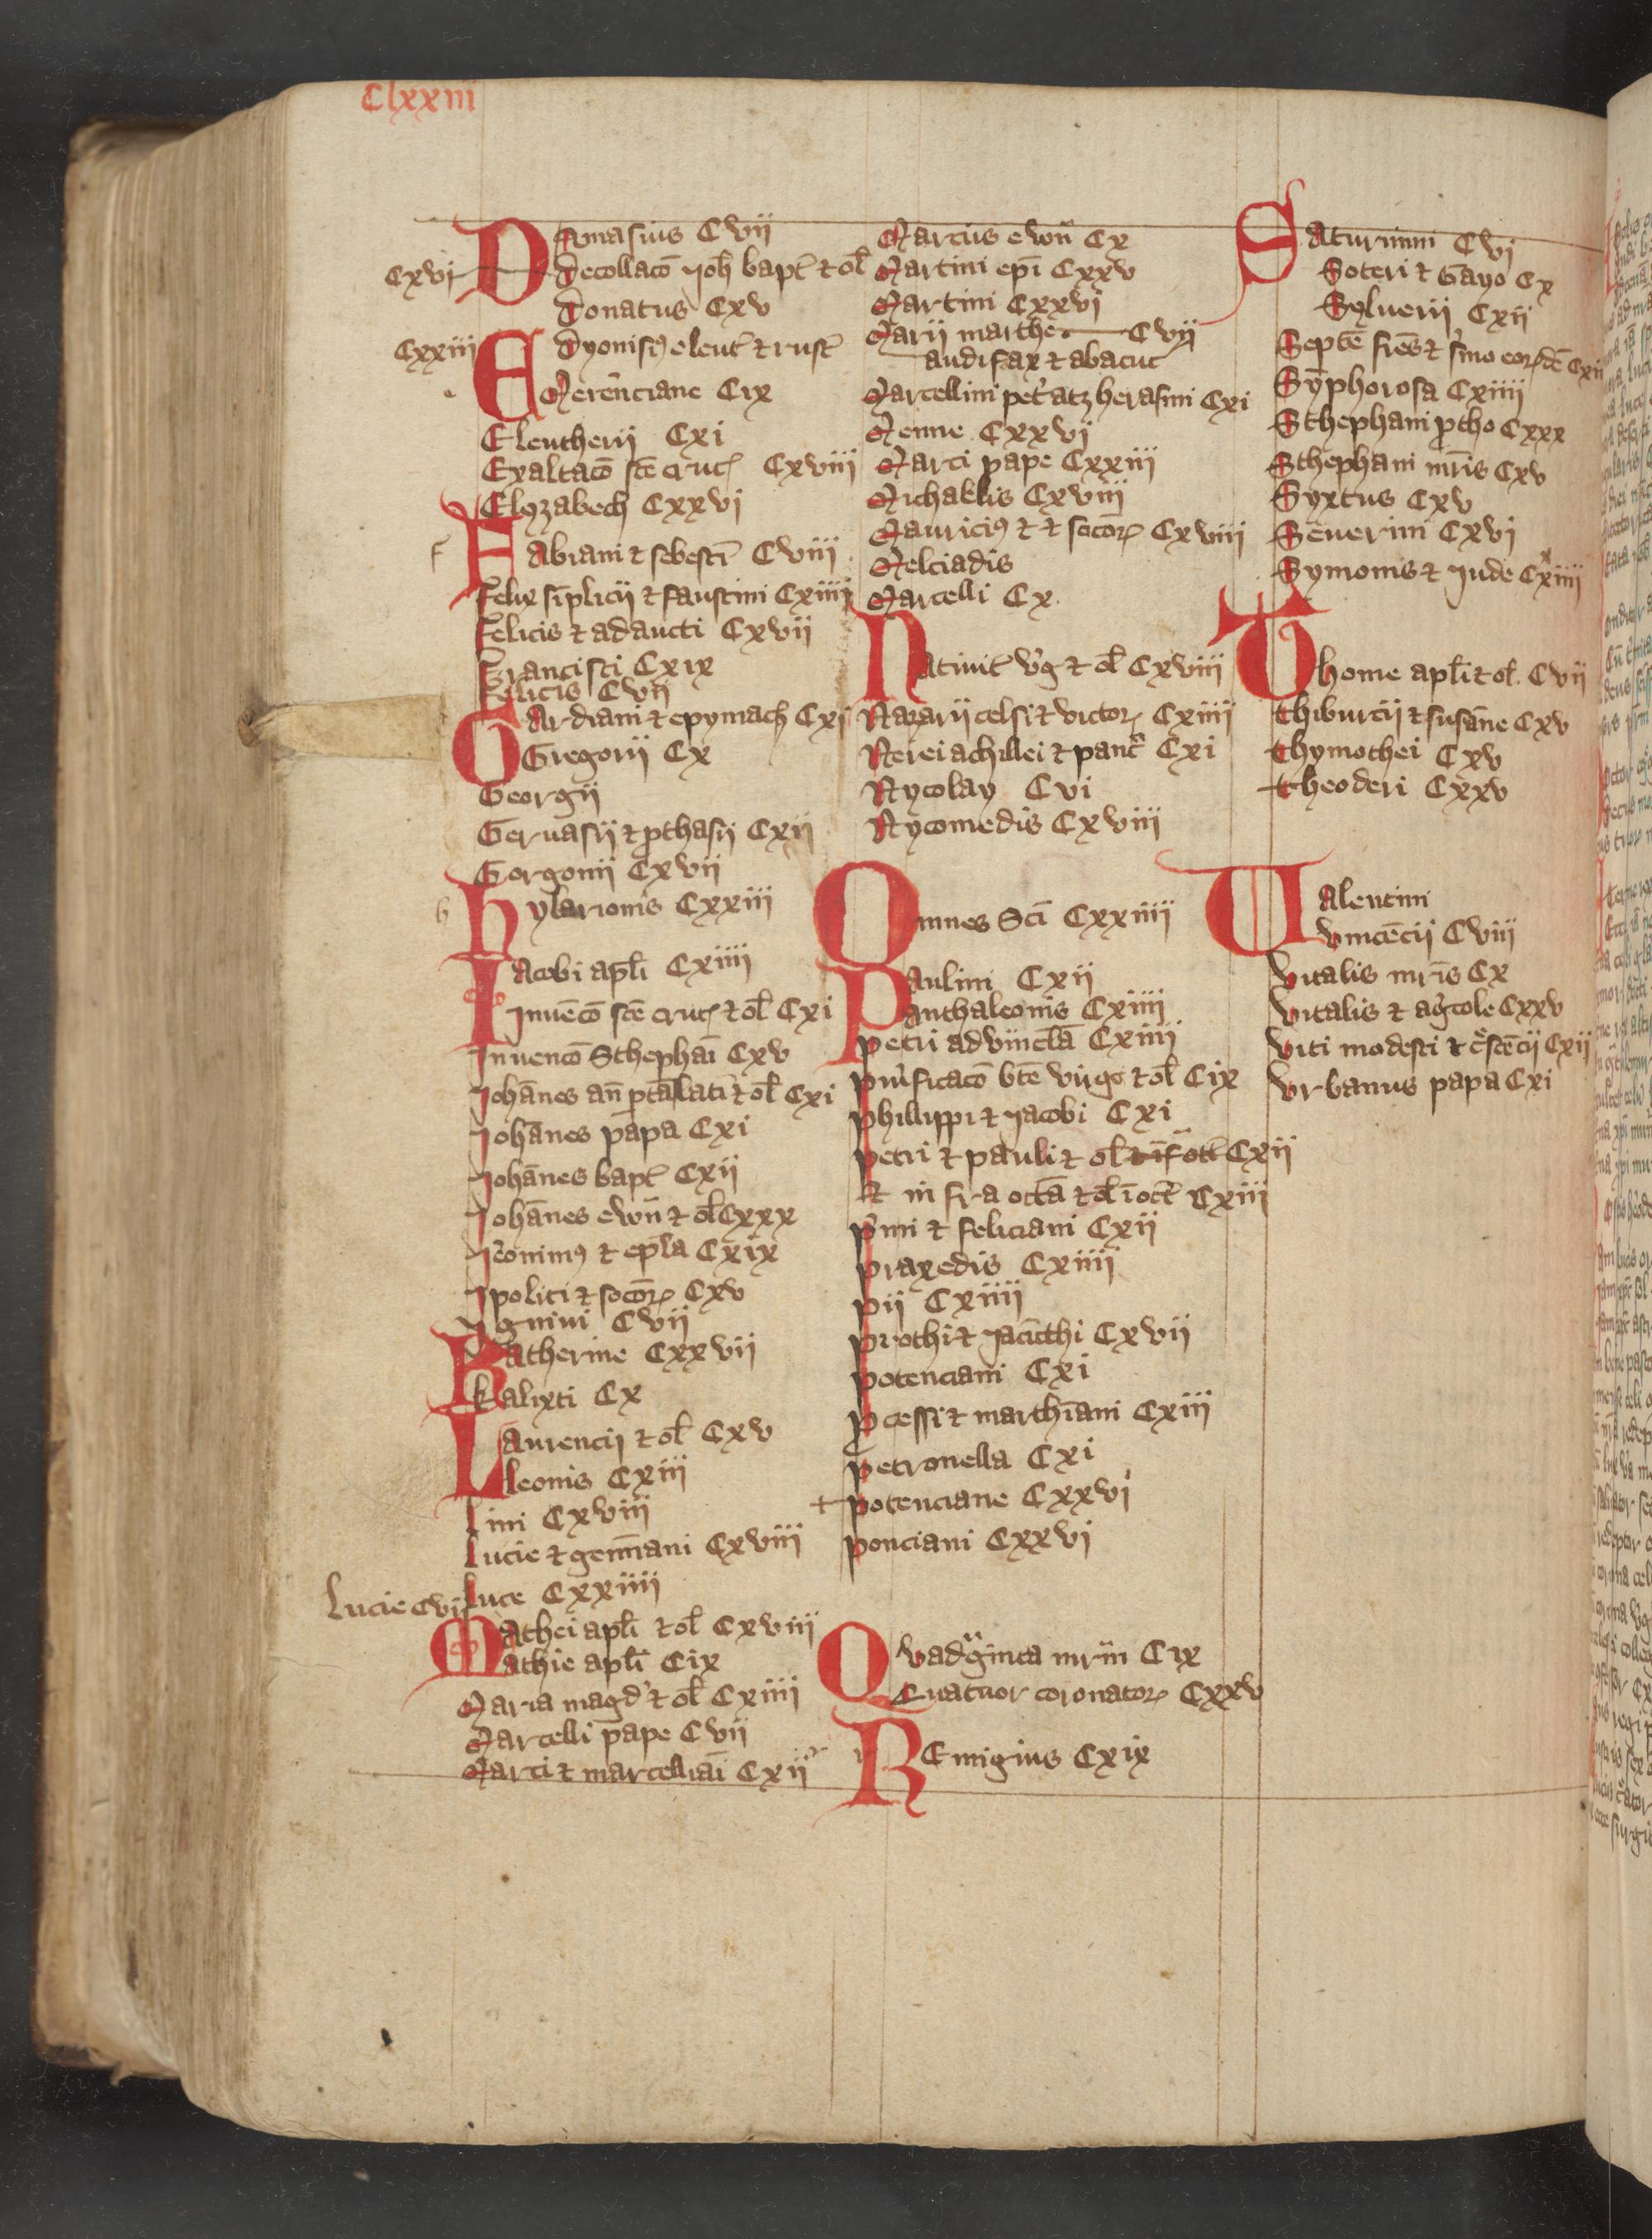 Clxxiii
Damasius Cvii
Cxvi Decollacō Joh bapt et ol
Donatus Cxv
Cxxiii Dyonisi9 eleut et rust
Emerenciane Cix
Eleutherii Cxi
Exaltacō scē cruc Cxviii
Elyzabech Cxxvi
Fabiani et sebesti Cviii
Felix siplicii et faustini Cxiiii
Felicis et adaucti Cxvii
Francisci Cxix
Felicis Cvii
Gardiani et epymach Cxi
Gregorii Cx
Georgii
Gervasii et pthasii Cxii
Gorgonii Cxvii
hylarionis Cxxiii
Iacobi apli Cxiiii
Invēcō scē cruc et ol Cxi
Invencō Sthephai Cxv
Johānes an ptālati et ol Cxi
Johānes papa Cxi
Johānes bapt Cxii
Johānes ewn et ol Cxxx
Jeonim9 et epla Cxix
Jpoliti et socor Cxv
Jgnivi Cvii
Katherine Cxxvii
kalixti Cx
Laurencii et ol Cxv
leonis Cxiii
lini Cxviii
lucie et gemiani Cxviii
Lucie Cvi luce Cxxiiii
Mathei apli et ol Cxviii
Mathie apli Cix
Maria magd et ol Cxiiii
Marcelli pape Cvii
Marci et marcelliai Cxii
Marcus ewn Cx
Martini epi Cxxv
Martini Cxxvi
Marii marthe Cvii
audifax et abacuc
Marcellini pet atz herasmi Cxi
Menne Cxxvi
Marci pape Cxxiii
Michaelis Cxviii
Maurici9 et et socor Cxviii
Melciadis
Marcelli Cx
Nativit vg et ol Cxviii
Nazarii celsi et victor Cxiiii
Nerei achillei et panc Cxi
Nycolay Cvi
Nycomedis Cxviii
Omnes Sci Cxxiiii
Paulini Cxii
Panthaleonis Cxiiii
petri ad vincla Cxiiii
purificacō btē virgo et ol Cix
phillippi et Jacobi Cxi
petri et pauli et ol Cxii
et in fra octa et ol ī oct Cxiii
pmi et feliciani Cxii
praxedis Cxiiii
pii Cxiiii
prothi et Jacincthi Cxvii
potenciani Cxi
pcessi et marthiani Cxiii
petronella Cxi
potenciane Cxxvi
ponciani Cxxvi
Qvadginta mrm Cix
Quatuor coronator Cxxv
REmigius Cxix
Saturnini Cvi
Soteri et Gayo Cx
Sylverii Cxii
Septē fres et smo Cxii
Syphorosa Cxiiii
Sthephani ptho Cxxx
Sthephani mris Cxv
Syxtus Cxv
Severini Cxvi
Symonis et Jude Cxxiiii
Thome apli et ol Cvii
thiburcii et susāne Cxv
thymothei Cxv
theoderi Cxxv
Valentini
vincēcii Cviii
vitalis mris Cx
vitalis et agcole Cxxv
viti modesti et cscēcii Cxii
vrbanus papa Cxi